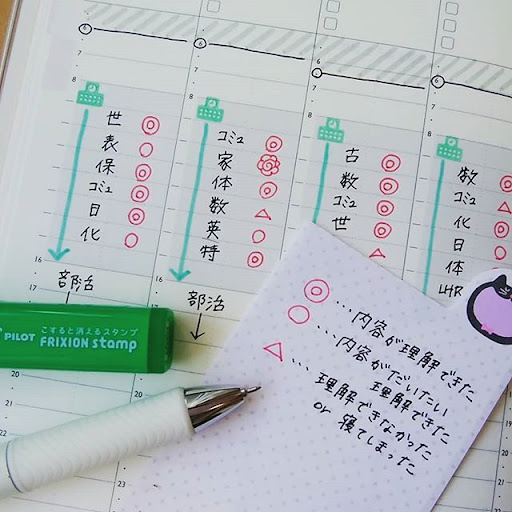 6
6
6
7
7
7
7
8
8
8
世
表
保
コミュ
日
化
16
17
部活
コミュ
家
体
数
英
特
16
部活
古
数
コミュ
世
数
コミュ
化
日
体
LHR
◎…内容が理解できた
○…内容がだいたい
理解できた
△…理解できなかった
or 寝てしまった
PILOT
こすると消えるスタンプ
FRIXION stamp
20
20
21
22
22
23